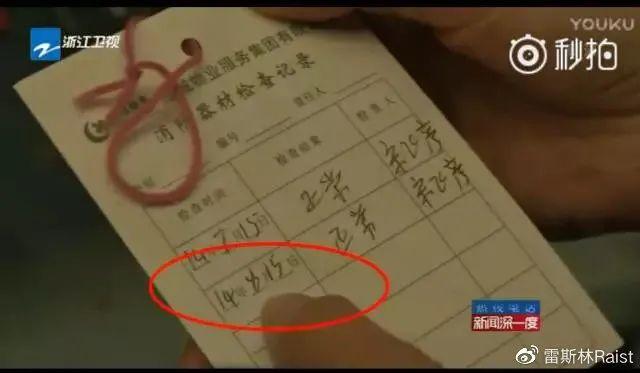 浙江卫视
YOUKU
秒拍
物业服务集团有限
消防器材检查记录
编号 责任人
检查时间 检查结果 检查人
14年7月15日 正常
14年8月15日 正常
热线电话
新闻深一度
@雷斯林Raist